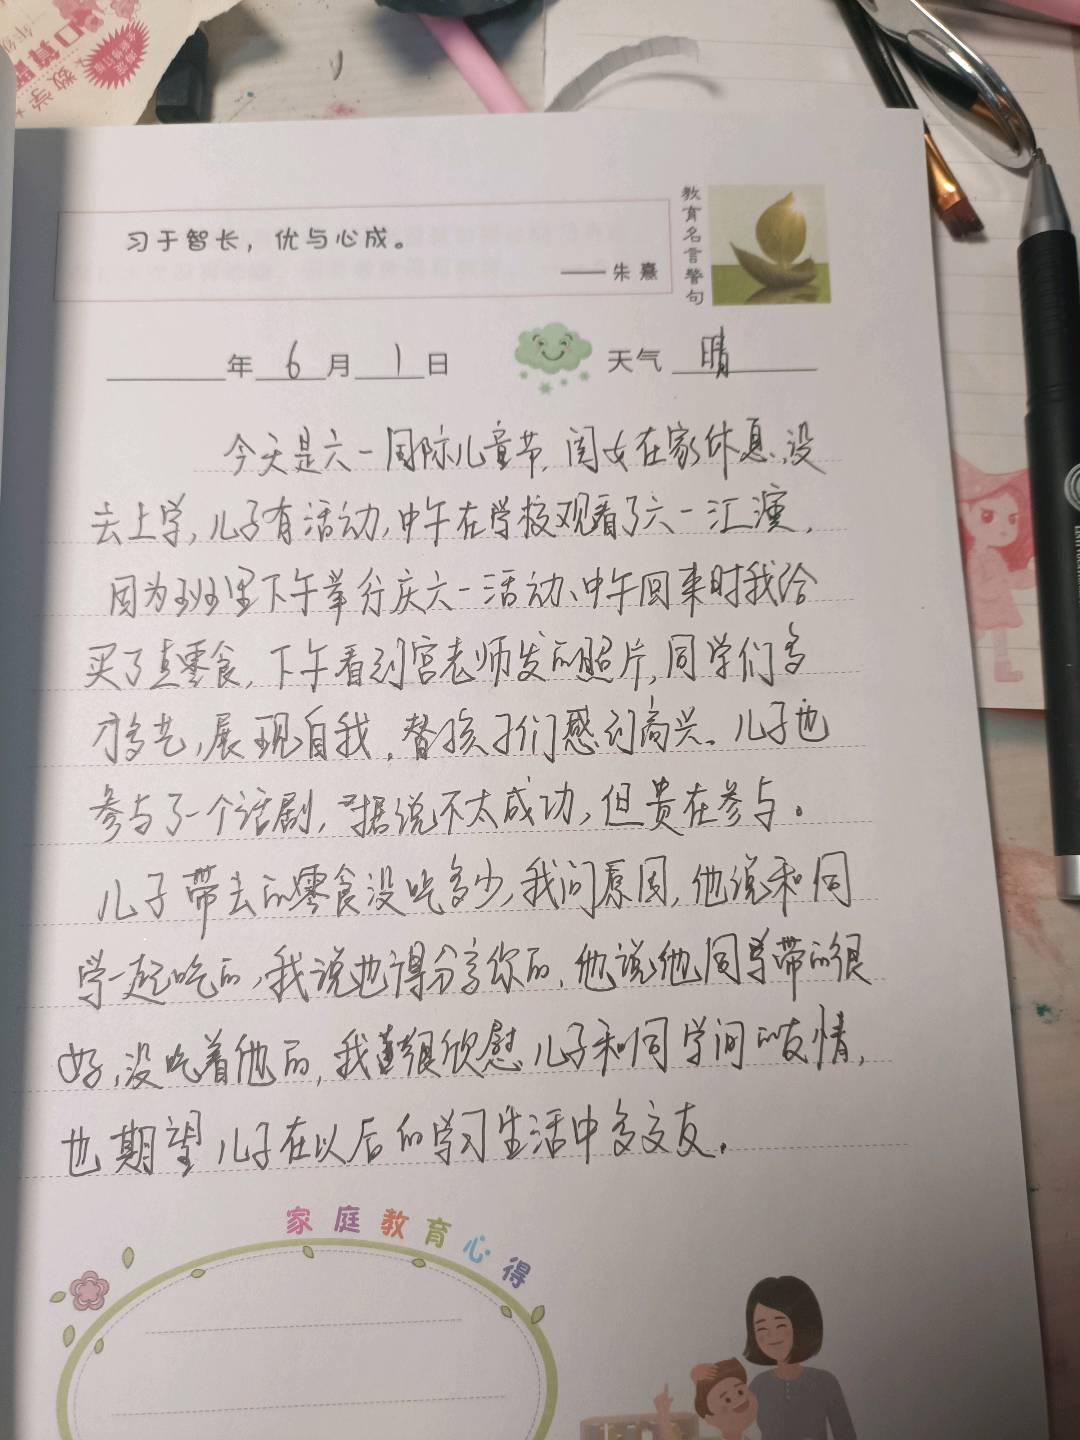 口算
数学
习于智长，优与心成。
——朱熹
教育名言警句
年 6 月 1 日 天气 晴
今天是六一国际儿童节，闺女在家休息，没
去上学，儿子有活动，中午在学校观看了六一汇演，
因为班里下午举行庆六一活动、中午回来时我给
买了点零食，下午看到宫老师发的照片，同学们多
才多艺，展现自我，替孩子们感到高兴。儿子也
参与了一个话剧，据说不太成功，但贵在参与。
儿子带去的零食没吃多少，我问原因，他说和同
学一起吃的，我说也得分享你的，他说他同学带的很
好，没吃着他的，我很欣慰儿子和同学间的友情，
也期望儿子在以后的学习生活中多交友。
家庭教育心得